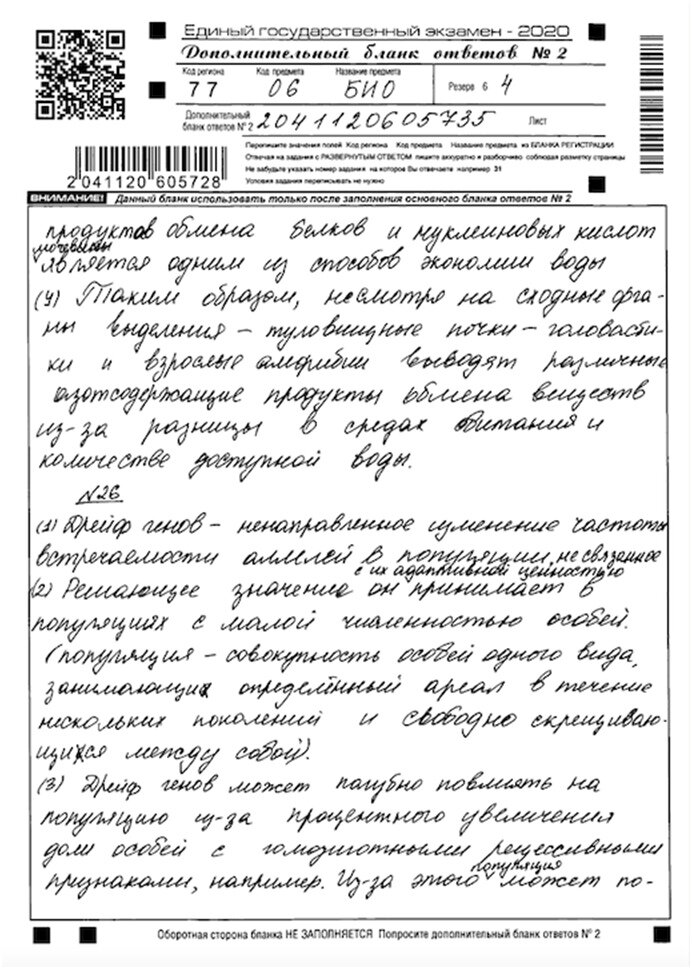 Единый государственный экзамен - 2020
Дополнительный бланк ответов № 2
Код региона Код предмета Название предмета
77 06 БИО Резерв 6 4
Дополнительный
бланк ответов № 2 2041120605735 Лист
Перепишите значения полей Код региона Код предмета Название предмета из БЛАНКА РЕГИСТРАЦИИ
Отвечая на задания с РАЗВЕРНУТЫМ ОТВЕТОМ пишите аккуратно и разборчиво соблюдая разметку страницы
Не забудьте указать номер задания на которое Вы отвечаете например 31
Условия задания переписывать не нужно
2 041120 605728
ВНИМАНИЕ! Данный бланк использовать только после заполнения основного бланка ответов № 2
продуктов обмена белков и нуклеиновых кислот
мочевины
является одним из способов экономии воды
(4) Таким образом, несмотря на сходные орга-
ны выделения - туловищные почки - головасти-
ки и взрослые амфибии выводят различные
азотсодержащие продукты обмена веществ
из-за разницы в средах обитания и
количестве доступной воды.
N26
(1) Дрейф генов - ненаправленное изменение частоты
встречаемости аллелей в популяции, не связанное
с их адаптивной ценностью
(2) Решающее значение он принимает в
популяциях с малой численностью особей.
(популяция - совокупность особей одного вида,
занимающих определённый ареал в течение
нескольких поколений и свободно скрещиваю-
щихся между собой).
(3) Дрейф генов может пагубно повлиять на
популяцию из-за процентного увеличения
доли особей с гомозиготными рецессивными
признаками, например. Из-за этого популяция может по-
Оборотная сторона бланка НЕ ЗАПОЛНЯЕТСЯ Попросите дополнительный бланк ответов № 2